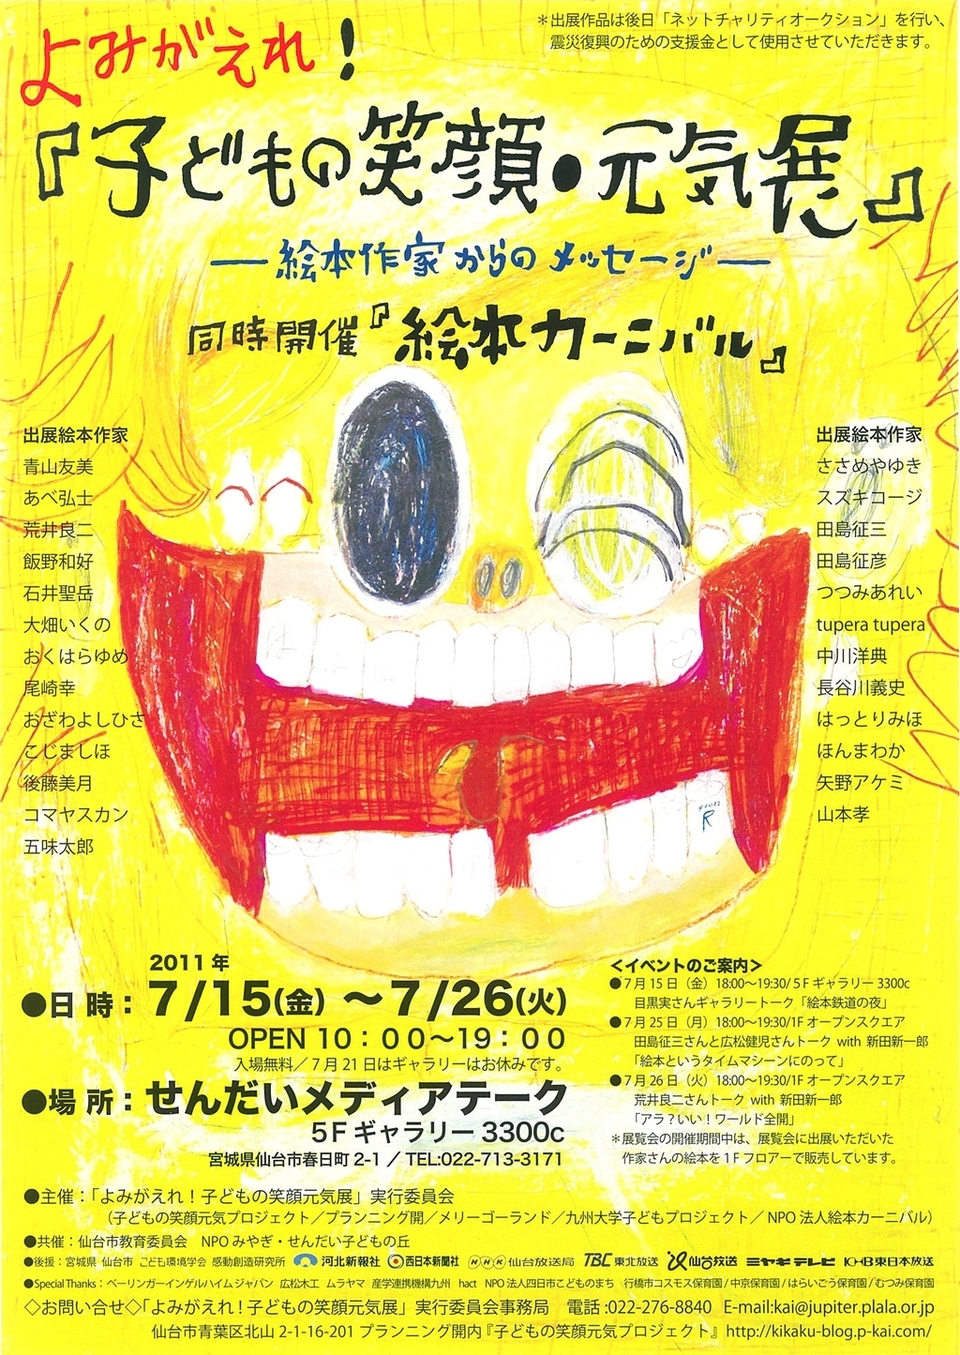 ＊出展作品は後日「ネットチャリティオークション」を行い、
震災復興のための支援金として使用させていただきます。
よみがえれ！
『子どもの笑顔・元気展』
―絵本作家からのメッセージ―
同時開催『絵本カーニバル』
出展絵本作家
青山友美
あべ弘士
荒井良二
飯野和好
石井聖岳
大畑いくの
おくはらゆめ
尾崎幸
おざわよしひさ
こじましほ
後藤美月
コマヤスカン
五味太郎
出展絵本作家
ささめやゆき
スズキコージ
田島征三
田島征彦
つつみあれい
tupera tupera
中川洋典
長谷川義史
はっとりみほ
ほんまわか
矢野アケミ
山本孝
2011 年
●日 時：7/15(金) ～7/26(火)
OPEN 10：00～19：00
入場無料／7月21日はギャラリーはお休みです。
●場 所：せんだいメディアテーク
５F ギャラリー 3300c
宮城県仙台市春日町 2-1 ／ TEL:022-713-3171
＜イベントのご案内＞
●7月15日（金）18:00～19:30/５F ギャラリー 3300c
目黒実さんギャラリートーク「絵本鉄道の夜」
●7月25日（月）18:00～19:30/1F オープンスクエア
田島征三さんと広松健児さんトーク with 新田新一郎
「絵本というタイムマシーンにのって」
●7月26日（火）18:00～19:30/1F オープンスクエア
荒井良二さんトーク with 新田新一郎
「アラ？いい！ワールド全開」
＊展覧会の開催期間中は、展覧会に出展いただいた
作家さんの絵本を１F フロアーで販売しています。
●主催：「よみがえれ！子どもの笑顔元気展」実行委員会
（子どもの笑顔元気プロジェクト／プランニング開／メリーゴーランド／九州大学子どもプロジェクト／ NPO 法人絵本カーニバル）
●共催：仙台市教育委員会　NPO みやぎ・せんだい子どもの丘
●後援：宮城県 仙台市 こども環境学会 感動創造研究所 河北新報社 西日本新聞社 NHK仙台放送局 TBC東北放送 仙台放送 ミヤギテレビ KHB東日本放送
●Special Thanks：ベーリンガーインゲルハイム ジャパン　広松木工　ムラヤマ　産学連携機構九州　hact　NPO 法人四日市こどものまち　行橋市コスモス保育園／中京保育園／はらいごう保育園／むつみ保育園
◇お問い合せ◇「よみがえれ！子どもの笑顔元気展」実行委員会事務局　電話:022-276-8840　E-mail:kai@jupiter.plala.or.jp
仙台市青葉区北山 2-1-16-201 プランニング開内『子どもの笑顔元気プロジェクト』 http://kikaku-blog.p-kai.com/